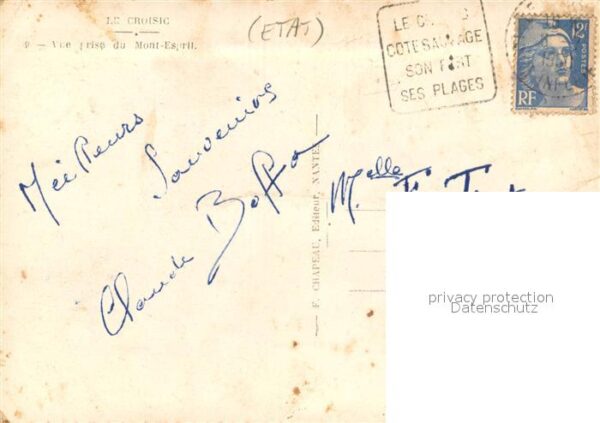 LE CROISIC
9 — Vue prise du Mont-Esprit.
(ETAT)
LE
COTE SAUVAGE
SON PORT
SES PLAGES
12F
POSTES
RF
Meilleurs
Souvenirs
Claude
Melle
F. CHAPEAU, Editeur, NANTES
privacy protection
Datenschutz